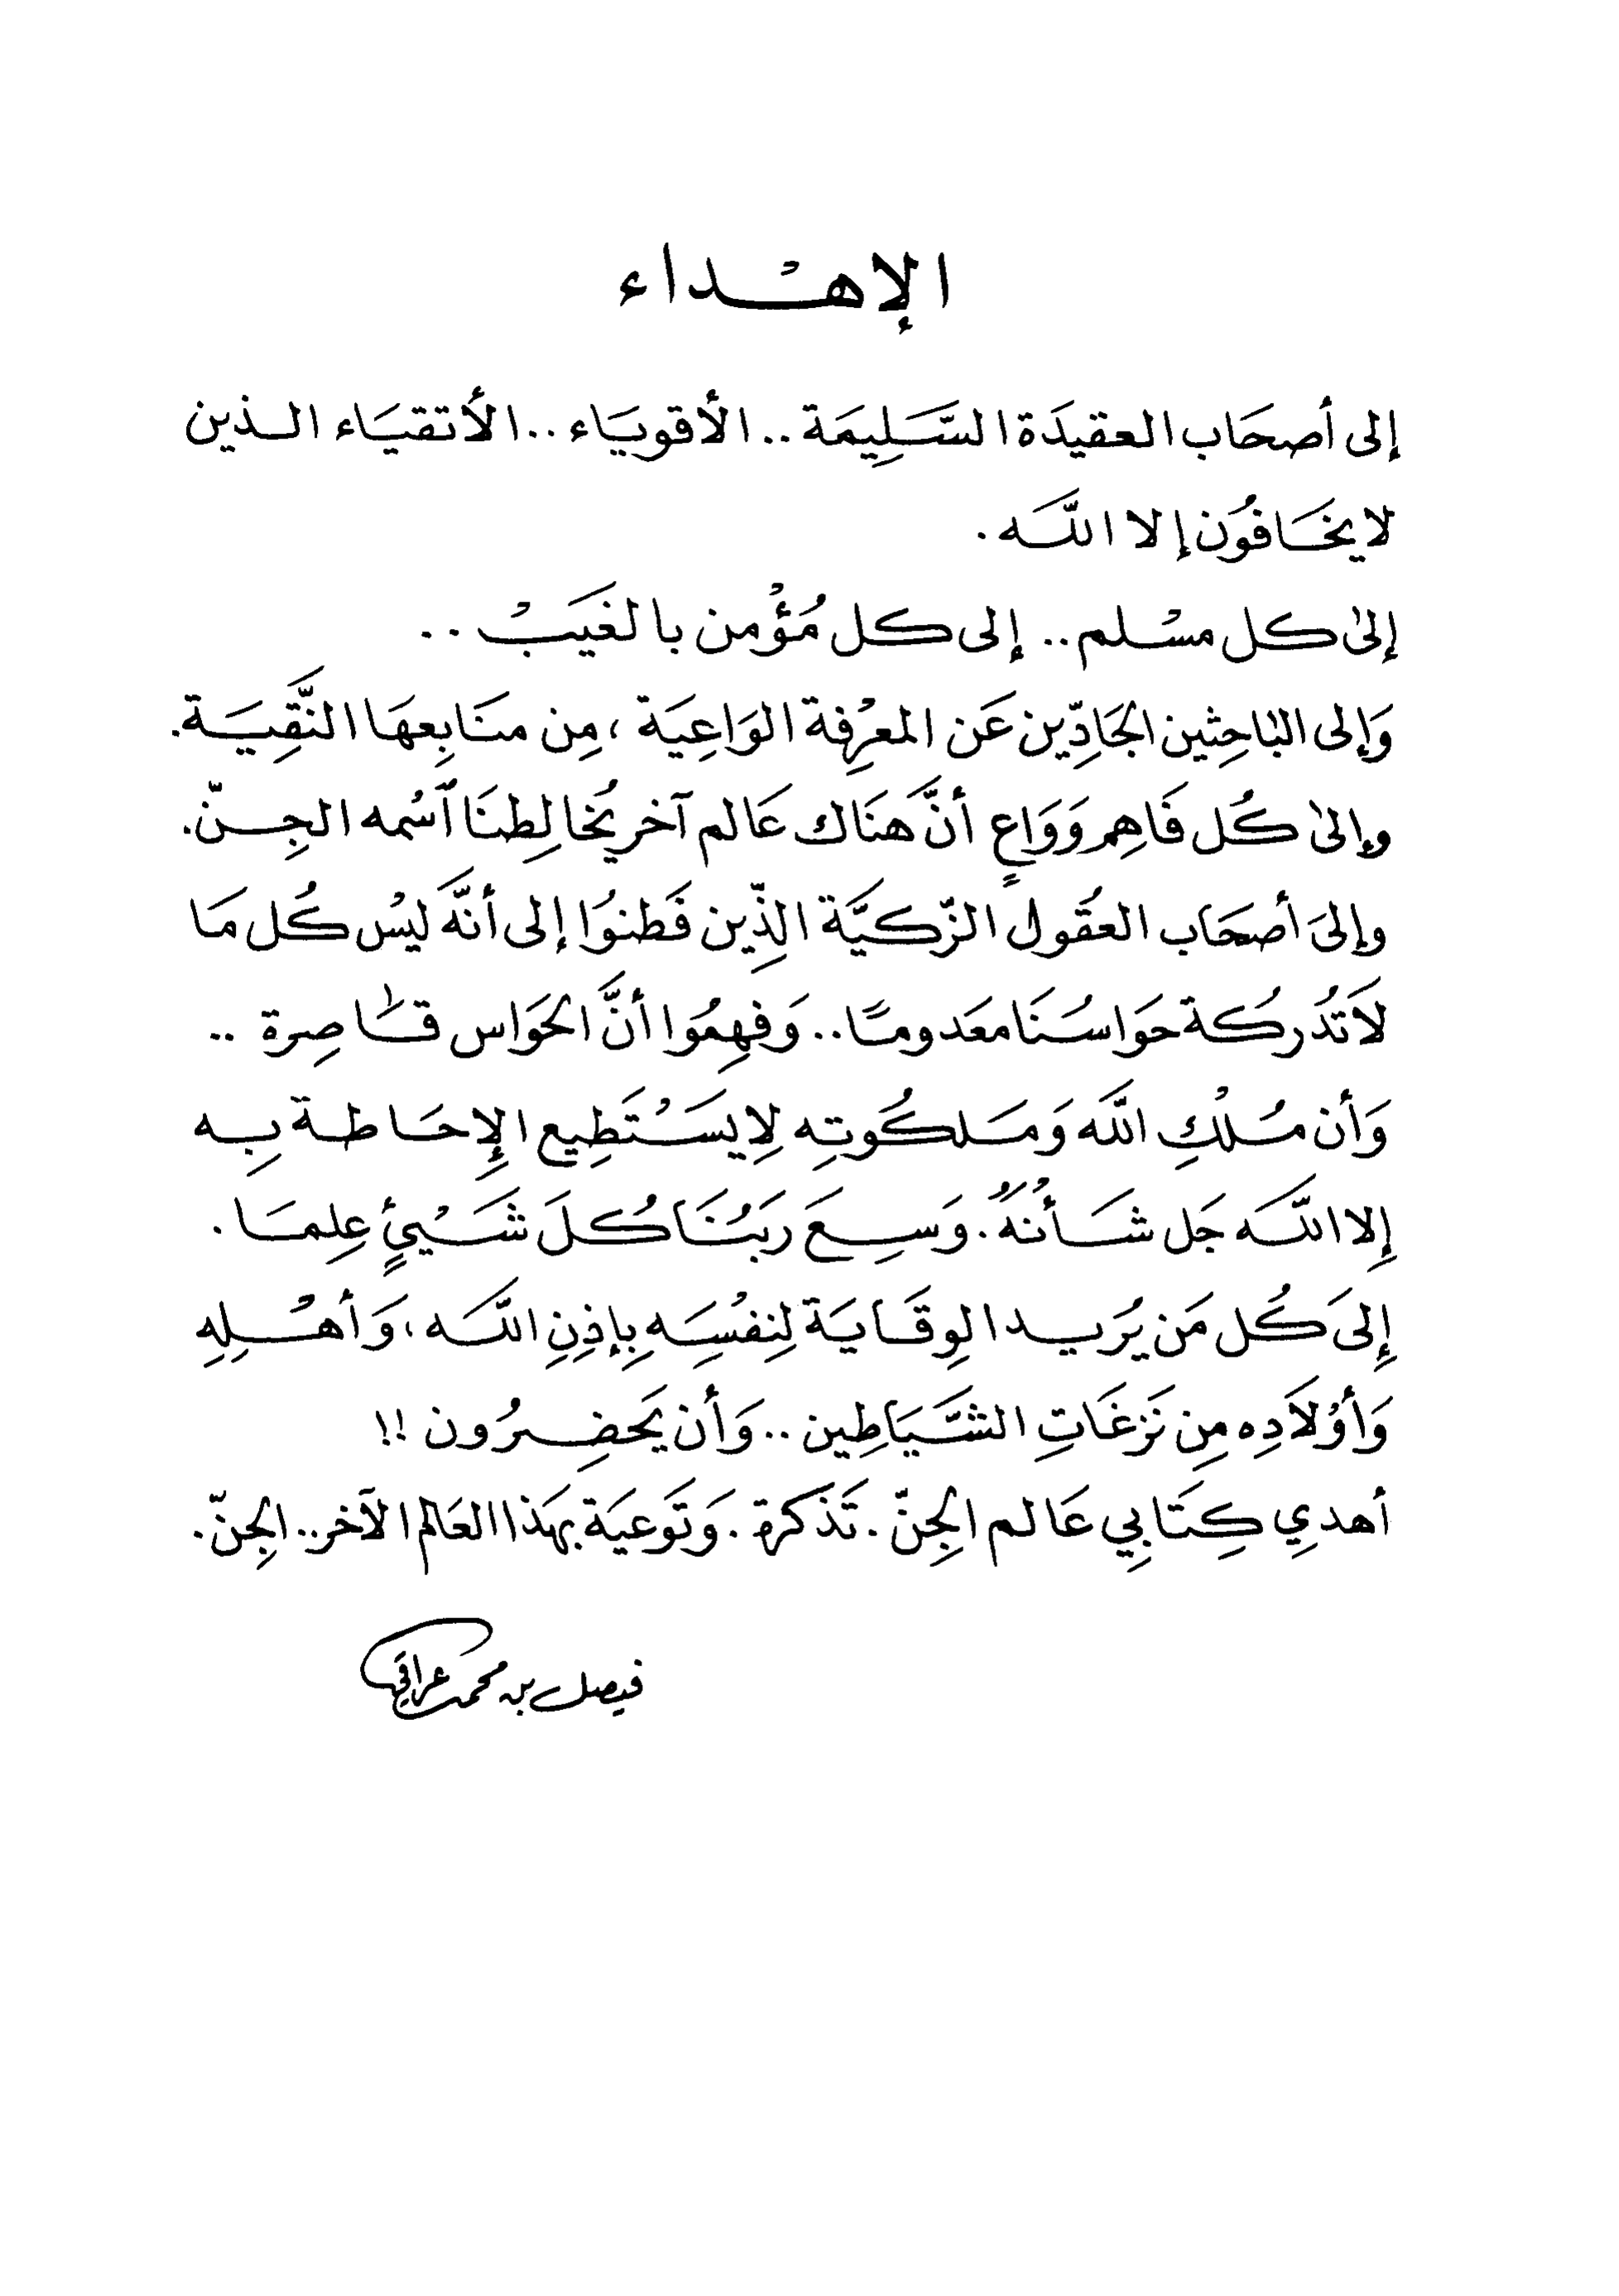 الإهْداء
إلى أصحَاب العقيدَة السَّلِيمَة .. الأقويَاء .. الأتقيَاء الذين
لا يخَافوُن إلا اللَّه .
إلىٰ كل مسْلم .. إلى كل مُؤْمن بالغَيبْ ..
وَإلى البٰاحِثين الجَادِّين عَن المعرْفِة الوَاعِيَة ، مِن منَابِعهَا النَّقِيَة .
وإلىٰ كُل فَاهِم وَوَاعٍ أنَّ هنَاك عَالم آخر يُخالِطنَا ٱسْمه الجِنّ .
وإلىَ أصحَاب العقُول الزّكيَّة الذِّين فَطنوُا إلى أنَّه ليسْ كُل مَا
لاَ تدُركُة حوَاسُنَا معَدومًا .. وَفهِمُوا أنَّ الحوَاس قَاصِرة ..
وَأن مُلْكِ اللَّه وَمَلكُوتِه لِا يسَتْطِيع الإِحَاطة بِه
إِلا اللَّه جَل شَأْنهُ . وَسِعَ ربَنُا كُلَ شَيْئٍ عِلِمَا .
إِلىَ كُل مَن يُريد الوِقَايَة لِنِفسُِه بِإذِنِ اللَّه ، وَأهْلِهِ
وَأوْلاَدِه مِن نَزغَاتِ الشَّيَاطِين .. وَأن يَحضِرُون !!
أهدي كِتَابِي عَالم الجِنّ . تَذكرة . وَتَوعيَة بهَذا العَالم الآخر .. الجِنّ .
فيصل بن محمد عراقي